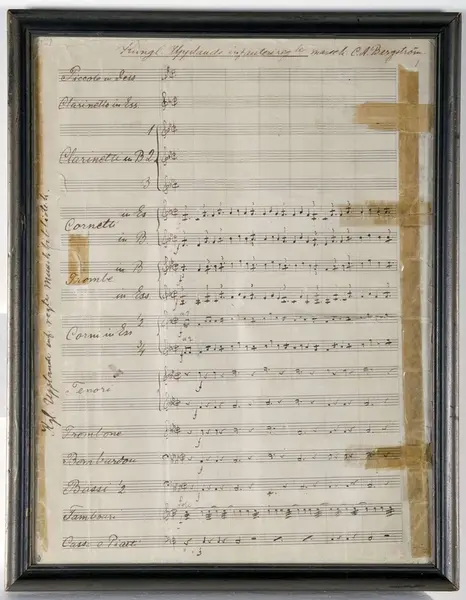 Kungl. Upplands infanterireg:te marsch. C. A. Bergström
Piccolo in Dess
Clarinetto in Ess
1
Clarinetti in B 2
3
in Es
Cornetti
in B
in B
Trombe
in Ess
1/2
Corni in Ess
3/4
Tenori
Trombone
Bombardon
Bassi 1/2
Tambur
Cassa e Piatti
Kgl. Upplands inf. regts